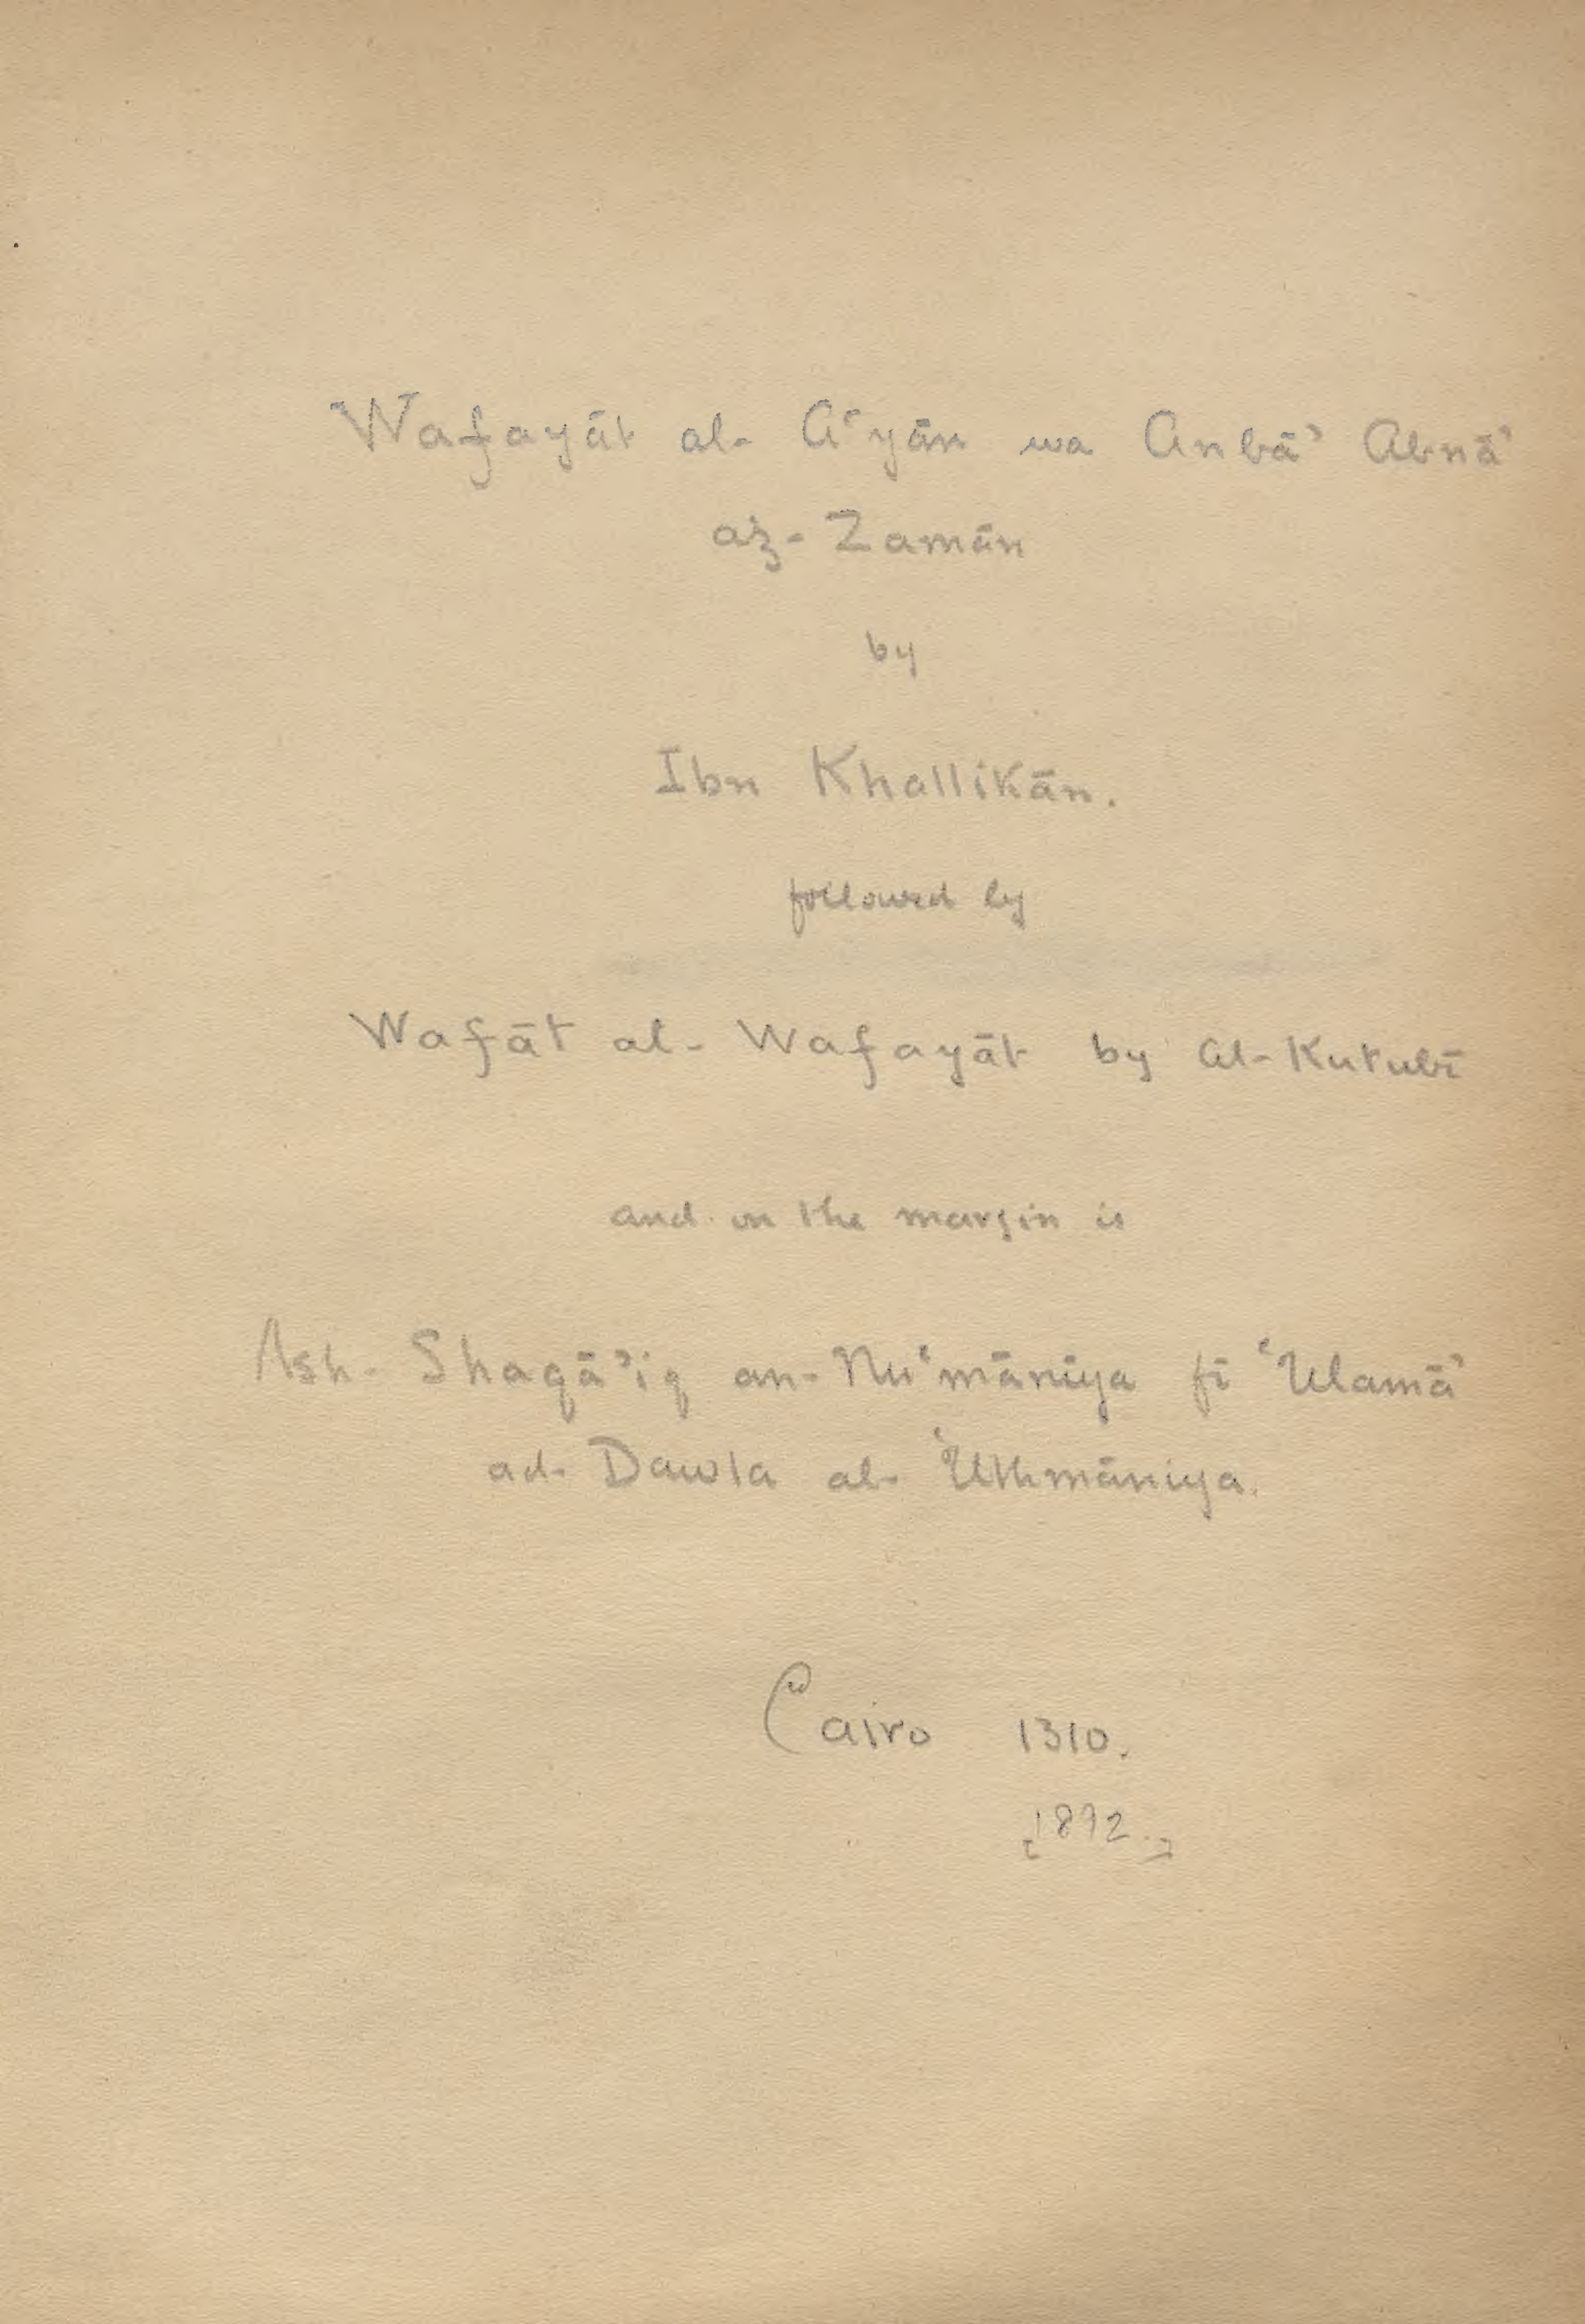 Wafayāt al- Aʿyān wa Anbāʾ Abnāʾ
az- Zamān
by
Ibn Khallikān.
followed by
Wafāt al- Wafayāt by al- Kutubī
and on the margin is
Ash- Shaqāʾiq an- Nuʿmāniya fī ʿUlamāʾ
ad- Dawla al- ʿUthmāniya.
Cairo 1310.
[1892.]